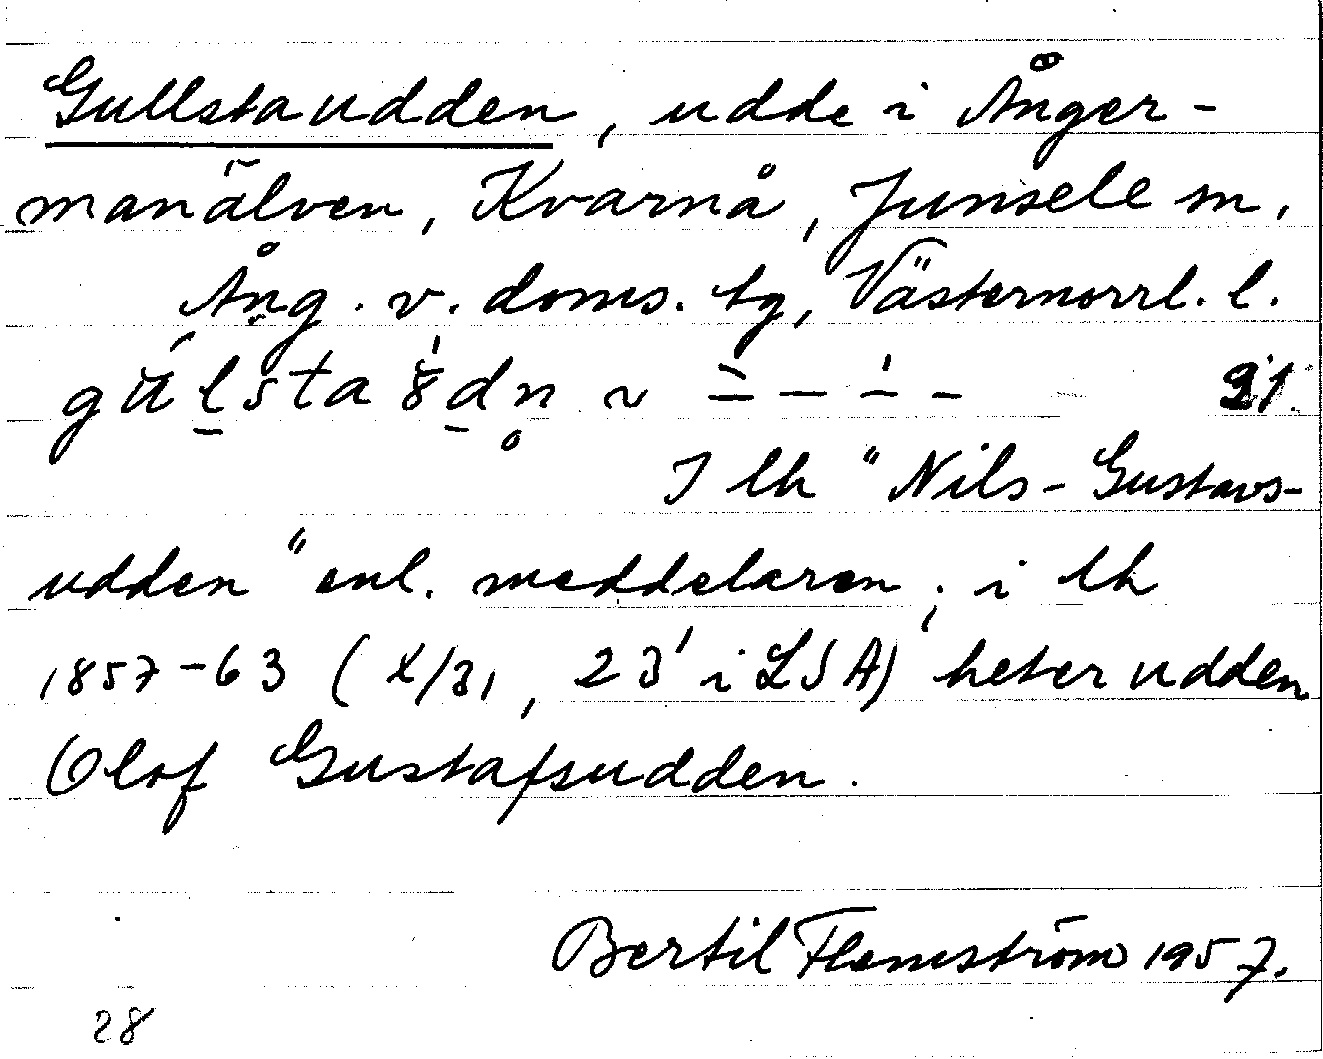 Gullstaudden, udde i Ånger-
manälven, Kvarnå, Junsele sn,
Ång. v. doms. tg, Västernorrl. l.
I lh "Nils-Gustavs-
udden" enl. meddelaren; i lh
1857-63 (X/31, 23' i LSA) heter udden
Olof Gustafsudden.
Bertil Flemström 1957.
28